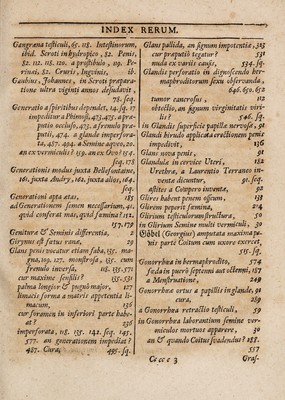 INDEX RERUM.
Gangræna testiculi, 65. 118. Intestinorum,
ibid. Scroti in hydropico, 52. Penis,
52. 112. 118. 120. a prostibulo, 119. Pe-
rinæi, 52. Cruris, Inguinis, ib.
Gaubius, Johannes, in Scroti præpara-
tione ultra viginti annos desudavit,
78. seq.
Generatio a spiritibus dependet, 14. sq. 17
impeditur a Phimosi, 473. 475. a præ-
putio perforato, 473. a frenulo præ-
putii, 474. a glande imperfora-
ta, 487. 494. a Semine aqueo, 20.
an ex vermiculis? 159. an ex Ovo? 174.
seq. 178
Generationis modus juxta Bellefontaine,
161. juxta Andry, 162. juxta alios, 164.
seq.
Generationi apta ætas, 185
ad Generationem semen necessarium, 41
quid conferat mas, quid fæmina? 172.
157. 179
Genituræ & Seminis differentia, 6
Girynus est fœtus ranæ, 29
Glans penis vocatur etiam faba, 135. ma-
gna, 119. 127. monstrosa, 135. cum
frenulo inversa, ib. 135. 571
cur maxime sensilis? 135. 571
palma longior & pugno major, 127
limacis forma a matris appetentia li-
macum, 236
cur foramen in inferiori parte ha-
beat? 136
imperforata, 118. 135. 142. seq. 145.
577. an generationem impediat?
487. Cura, 495. sq.
Glans pallida, an signum impotentiæ, 325
cur præputio tegatur? 131
nuda ex variis causis, 534. sq.
Glandis perforatio in dignoscendo her-
maphroditorum sexu observanda,
646. 650. 652
tumor cancerosus, 112
obtectio, an signum virginitatis viri-
lis? 546. sq.
in Glandis superficie papillæ nervosæ, 98
Glandi hirudo applicata erectionem penis
impedivit, 136
Glans nova penis, 91
Glandula in cervice Uteri, 182
Urethræ, a Laurentio Terraneo in-
venta dicuntur, 91. seq.
astites a Cowpero inventæ, 92
Glires habent penem osseum, 131
Glirium peperit fæmina, 214
Glirium testiculorum structura, 50
in Glirium Semine multi vermiculi, 59
Göbel (Georgius) amputata maxima pe-
nis parte Coitum cum uxore exercet,
95
Gonorrhœa in hermaphrodito, 574
fœda in puero septem aut octo enni, 187
a Menstruatione, 249
Gonorrhœæ ortus a papillis in glande, 92
cura, 289
a Gonorrhœa retractio testiculi, 59
in Gonorrhœa laborantium semine ver-
miculos mortuos apparere, 30
an & quando Coitus suadendus? 288.
557
Cc cc c 3
Graf-